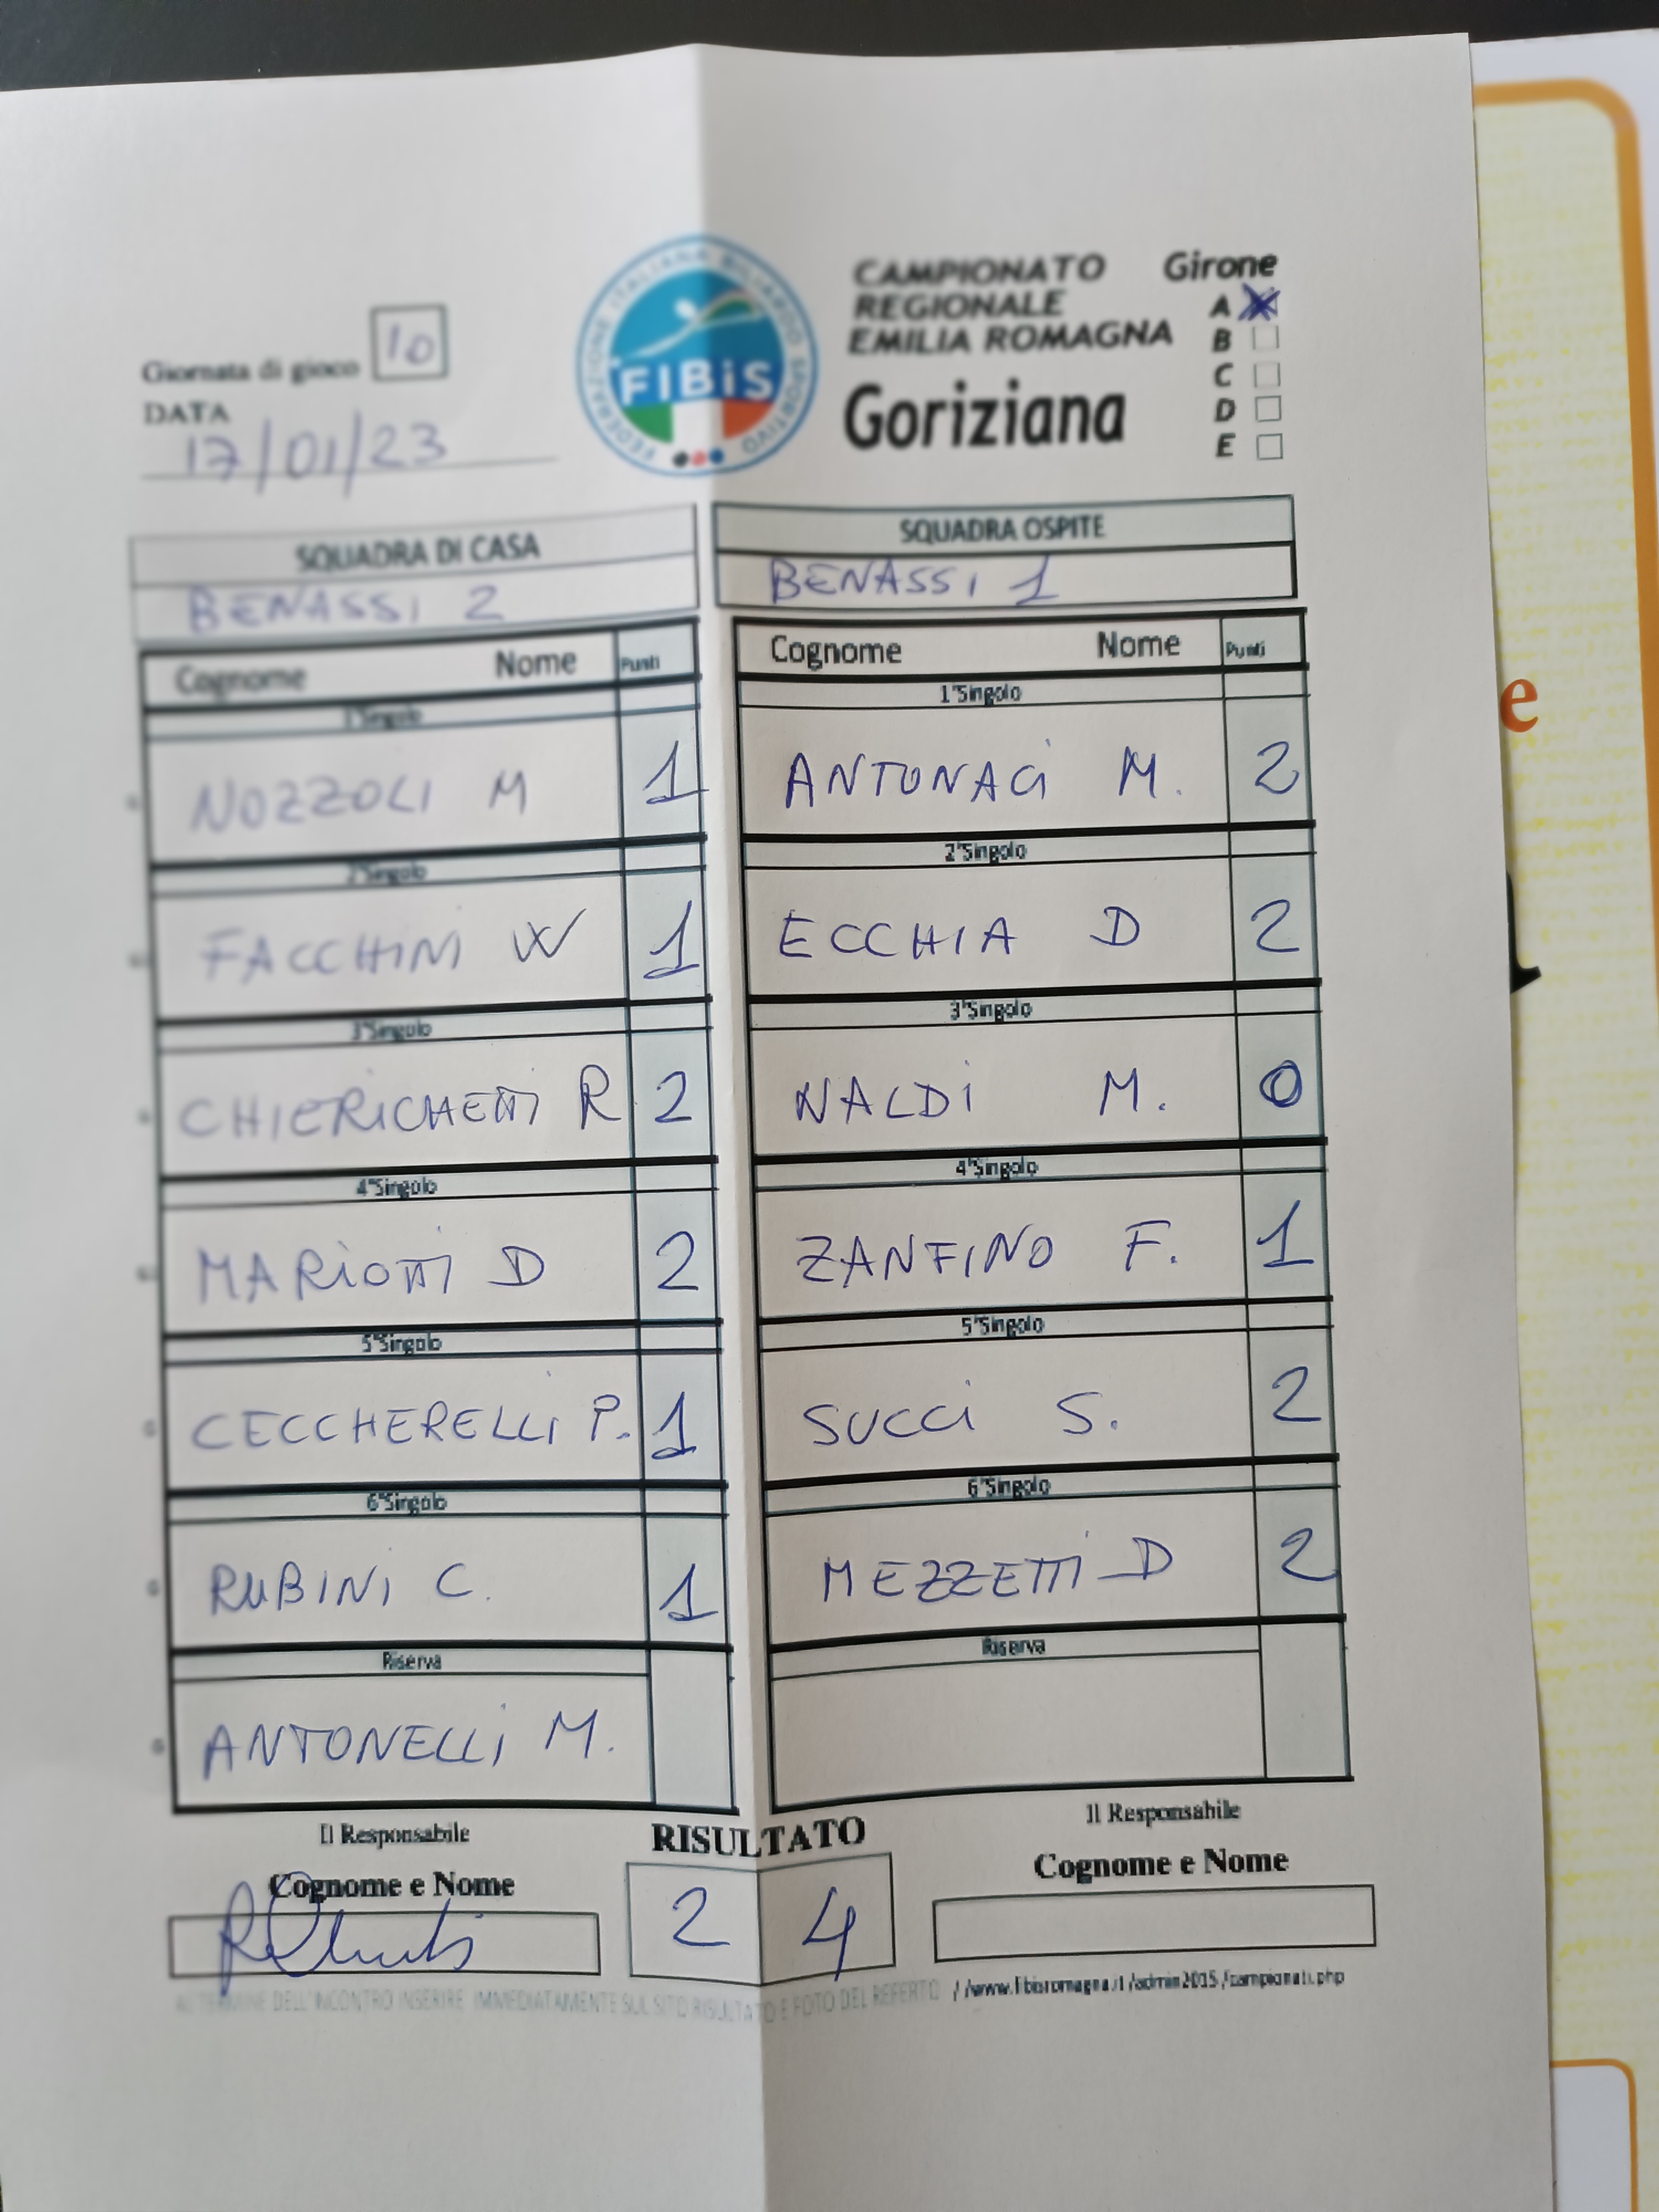 CAMPIONATO Girone
REGIONALE A
EMILIA ROMAGNA B
C
Goriziana D
E
Giornata di gioco 10
DATA
17/01/23
FEDERAZIONE ITALIANA BILIARDO SPORTIVO
FIBiS
SQUADRA DI CASA
BENASSI 2
SQUADRA OSPITE
BENASSI 1
Cognome Nome Punti
1°Singolo
NOZZOLI M 1
2°Singolo
FACCHINI W 1
3°Singolo
CHIERICHETTI R 2
4°Singolo
MARIOTTI D 2
5°Singolo
CECCHERELLI P. 1
6°Singolo
RUBINI C. 1
Riserva
ANTONELLI M.
Cognome Nome Punti
1°Singolo
ANTONACI M. 2
2°Singolo
ECCHIA D 2
3°Singolo
NALDI M. 0
4°Singolo
ZANFINO F. 1
5°Singolo
SUCCI S. 2
6°Singolo
MEZZETTI D 2
Riserva
Il Responsabile
Cognome e Nome
RISULTATO
2 4
Il Responsabile
Cognome e Nome
AL TERMINE DELL'INCONTRO INSERIRE IMMEDIATAMENTE SUL SITO RISULTATO E FOTO DEL REFERTO //www.fibisromagna.it/admin2015/campionati.php
e